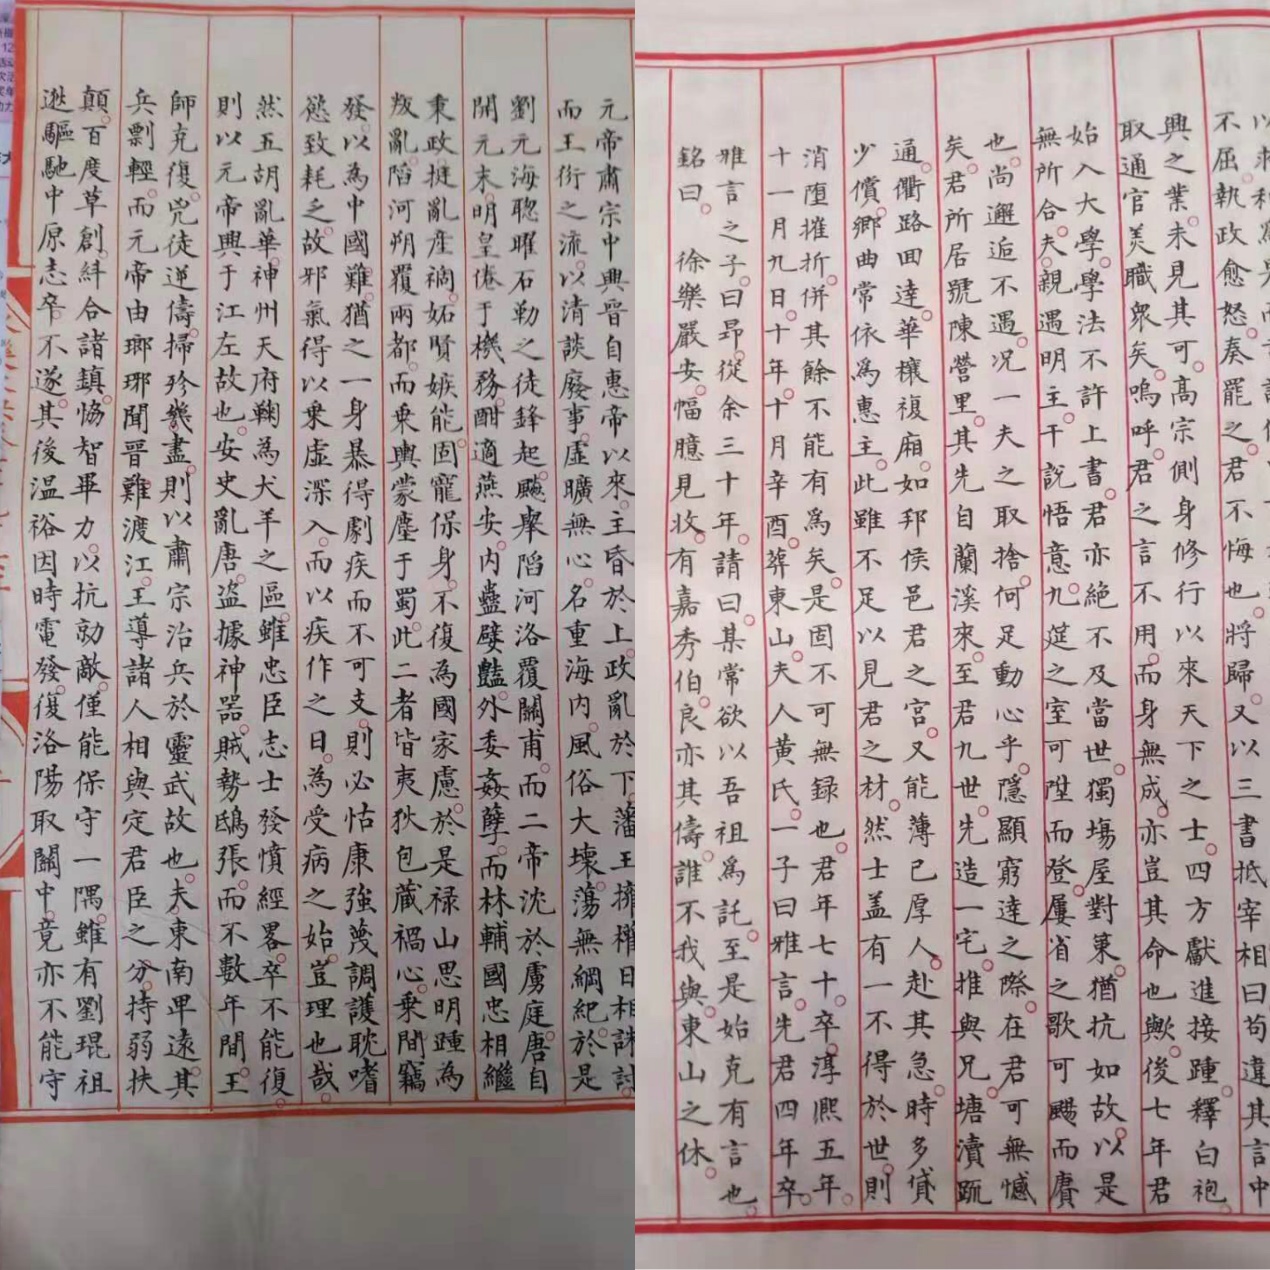 元帝肅宗中興晉自惠帝以來。主昏於上。政亂於下。藩王擁權日相誅討。
而王衍之流。以清談廢事。虛曠無心。名重海内。風俗大壞。蕩無綱紀。於是
劉元海聰曜石勒之徒鋒起。飈舉蹈河洛覆關甫。而二帝沈於虜庭。唐自
開元末。明皇倦于機務。酣適燕安。内蠱嬖豔。外委姦孽。而林輔國忠相繼
秉政。挻亂産禍。妬賢嫉能。固寵保身。不復為國家慮。於是禄山思明踵為
叛亂。蹈河朔覆兩都。而乗輿蒙塵于蜀。此二者皆夷狄包蔵禍心。乗間竊
發。以為中國難。猶之一身暴得劇疾而不可支。則必怙康強蔑調護耽嗜
慾致耗乏。故邪氣得以乗虛深入。而以疾作之日。為受病之始。豈理也哉。
然五胡亂華。神州天府鞠為犬羊之區。雖忠臣志士發憤經畧。卒不能復
則以元帝興于江左故也。安史亂唐。盜據神器。賊勢鴟張。而不數年間。王
師克復。兇徒逆儔。掃殄幾盡。則以肅宗治兵於靈武故也。夫東南卑遠。其
兵剽輕。而元帝由瑯琊聞晉難渡江。王導諸人相與定君臣之分。持弱扶
顛。百度草創。糾合諸鎮。恊智畢力。以抗勍敵。僅能保守一隅。雖有劉琨祖
逖驅馳中原志卒不遂。其後温裕因時電發。復洛陽取關中。竟亦不能守
不屈。執政愈怒。奏罷之。君不悔也。將歸。又以三書抵宰相曰苟違其言中
興之業。未見其可。高宗側身修行以來天下之士。四方獻進接踵。釋白袍。
取通官美職衆矣。嗚呼。君之言不用。而身無成。亦豈其命也歟。後七年君
始入大學。學法不許上書。君亦絶不及當世。獨塲屋對策。猶抗如故。以是
無所合。夫。親遇明主。干説悟意。九筵之室可陞而登。屢省之歌可颺而賡
也。尚邂逅不遇。况一夫之取捨。何足動心乎。隱顯窮達之際。在君可無憾
矣。君所居號陳營里。其先自蘭溪來。至君九世。先造一宅。推與兄。塘瀆䟽
通。衢路回達。華欀複廂。如邦侯邑君之宫。又能薄已厚人。赴其急。時多貸
少償。鄉曲常依爲惠主。此雖不足以見君之材。然士盖有一不得於世。則
消堕摧折。併其餘不能有爲矣。是固不可無録也。君年七十。卒。淳熙五年。
十一月九日。十年。十月辛酉。葬東山。夫人黄氏。一子曰雅言。先君四年卒。
雅言之子。曰昴。從余三十年。請曰。某常欲以吾祖爲託。至是始克有言也。
銘曰。　徐樂嚴安。愊臆見收。有嘉秀伯。良亦其儔。誰不我與。東山之休。